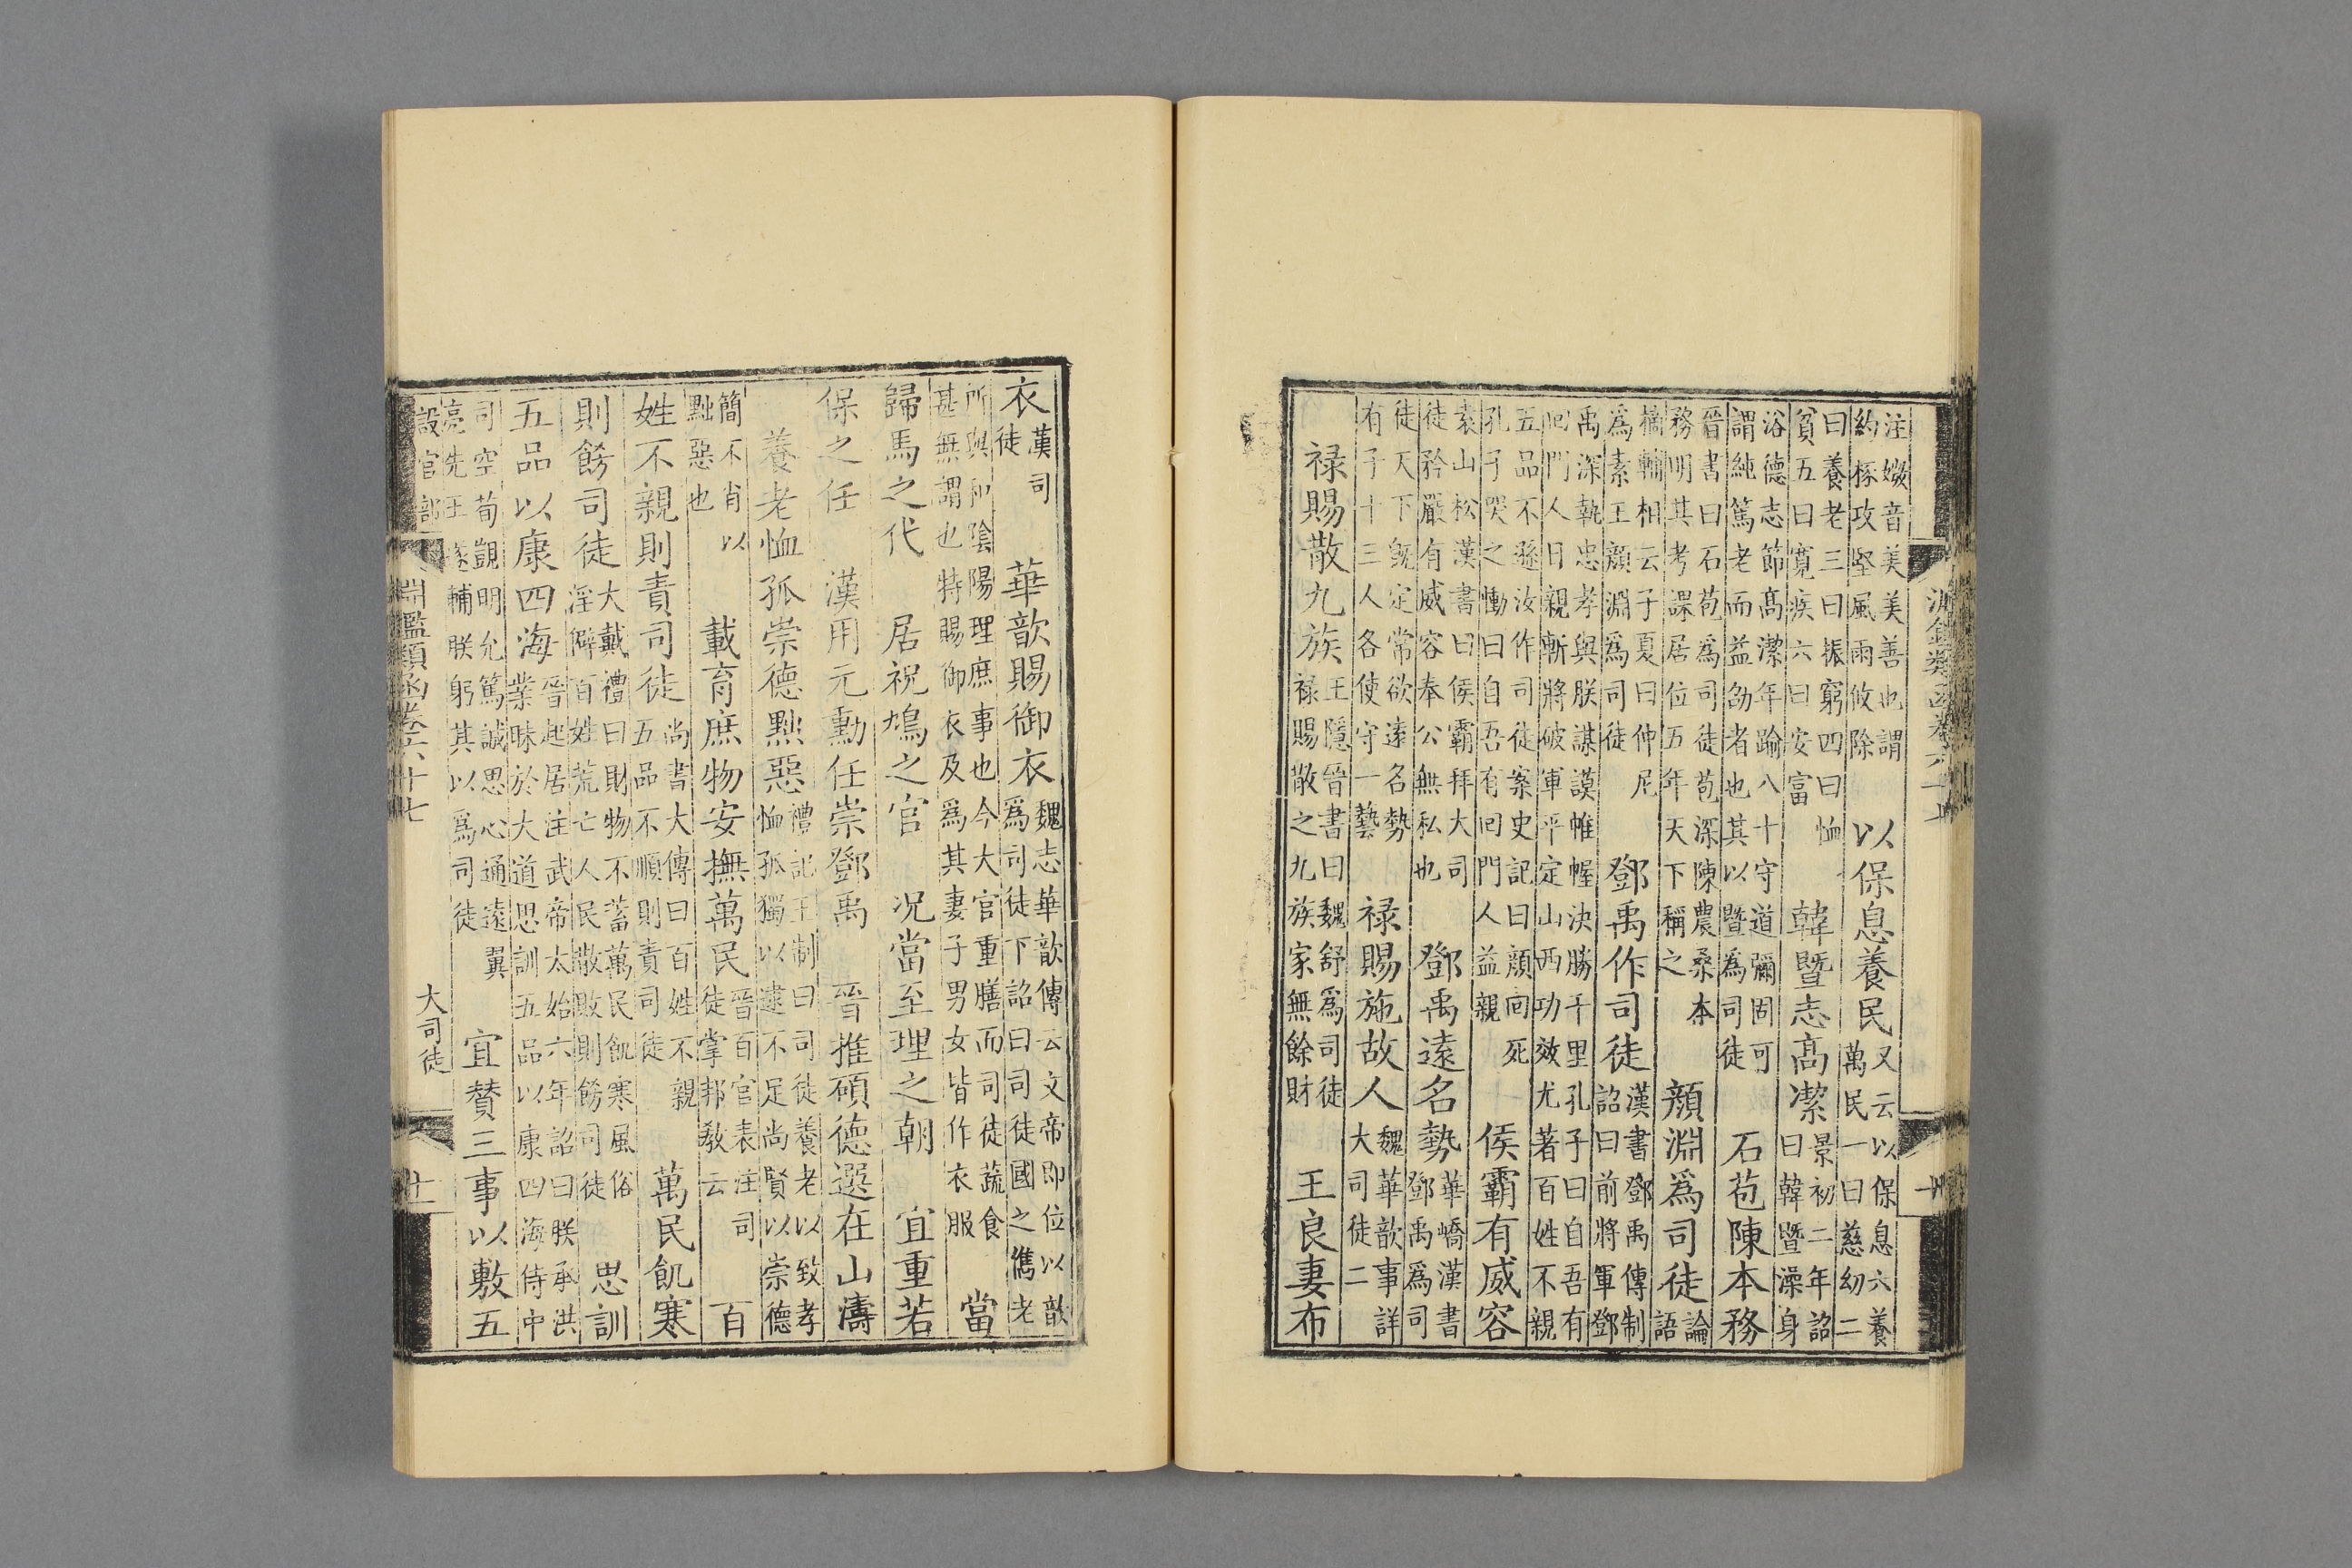 注媺音美美善也謂
約椓攻堅風雨攸除
以保息養民
又云以保息六養
萬民一曰慈幼二
曰養老三曰振窮四曰恤
貧五曰寛疾六曰安富
韓暨志高潔
景初二年詔
曰韓暨澡身
浴德志節高潔年踰八十守道彌固可
謂純篤老而益劭者也其以暨爲司徒
石苞陳本務
晉書曰石苞爲司徒苞深陳農桑本
務明其考課居位五年天下稱之
顔淵爲司徒
論
語
輔相云子夏曰仲尼
爲素王顔淵爲司徒
鄧禹作司徒
漢書鄧禹傳制
詔曰前將軍鄧
禹深執忠孝與朕謀謨帷幄決勝千里孔子曰自吾有
囘門人日親斬將破軍平定山西功效尤著百姓不親
五品不遜汝作司徒案史記曰顔囘死
孔子哭之慟曰自吾有囘門人益親
侯霸有威容
袁山松漢書曰侯霸拜大司
徒矜嚴有威容奉公無私也
鄧禹遠名勢
華嶠漢書
鄧禹爲司
徒天下旣定常欲遠名勢
有子十三人各使守一藝
祿賜施故人
魏華歆事詳
大司徒二
祿賜散九族
王隱晉書曰魏舒爲司徒
祿賜散之九族家無餘財
王良妻布
衣
漢司
徒
華歆賜御衣
魏志華歆傳云文帝即位以歆
爲司徒下詔曰司徒國之儁老
所與和陰陽理庶事也今大官重膳而司徒蔬食
甚無謂也特賜御衣及爲其妻子男女皆作衣服
當
歸馬之代 居祝鳩之官 况當至理之朝 宜重若
保之任 漢用元勳任崇鄧禹 晉推碩德選在山濤
養老恤孤崇德黜惡
禮記王制曰司徒養老以致孝
恤孤獨以逮不足尚賢以崇德
簡不肖以
黜惡也
載育庶物安撫萬民
晉百官表注司
徒掌邦敎云
百
姓不親則責司徒
尚書大傳曰百姓不親
五品不順則責司徒
萬民飢寒
則餝司徒
大戴禮曰財物不蓄萬民飢寒風俗
淫僻百姓荒亡人民散敗則餝司徒
思訓
五品以康四海
晉起居注武帝太始六年詔曰朕承洪
業昧於大道思訓五品以康四海侍中
司空荀顗明允篤誠思心通遠翼
亮先王遂輔朕躬其以爲司徒
宜贊三事以敷五
設官部
淵鑑類函卷六十七
大司徒
十一